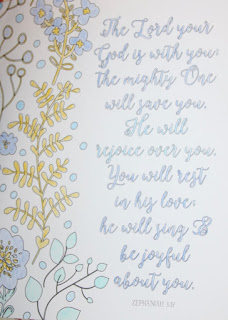 The Lord your
God is with you;
the mighty One
will save you.
He will
rejoice over you.
You will rest
in his love;
he will sing &
be joyful
about you.
ZEPHANIAH